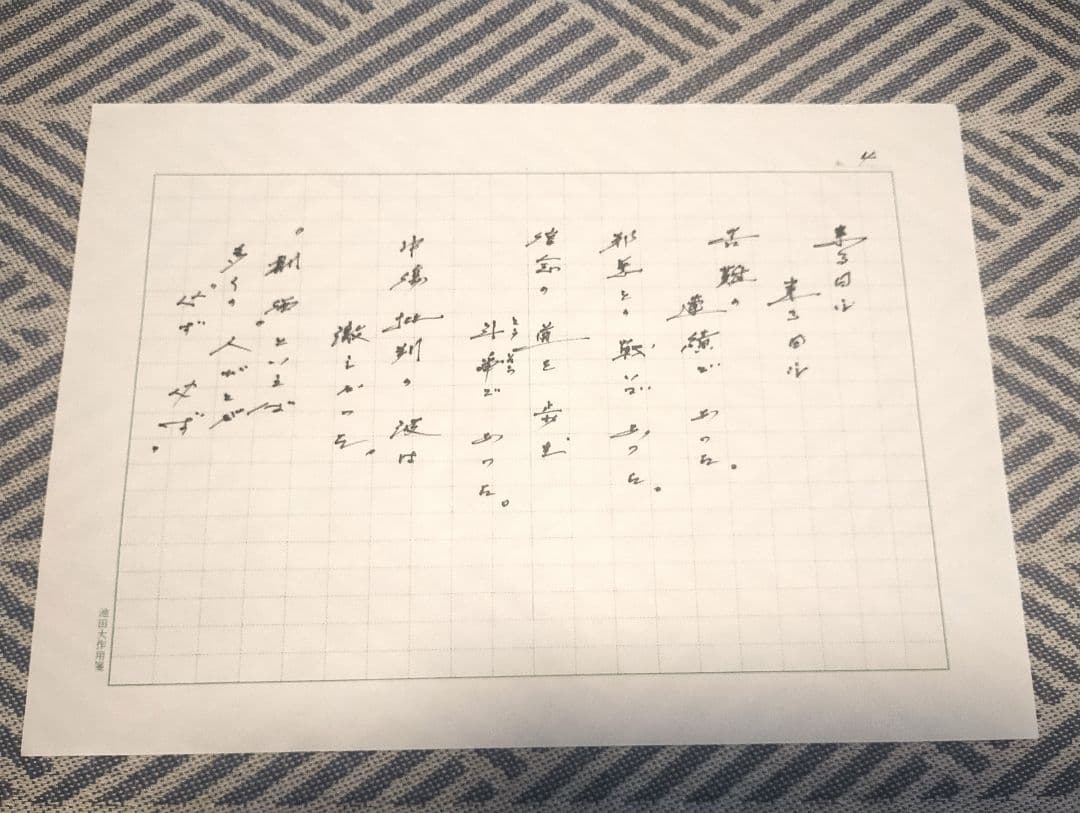 4
来る日も
来る日も
苦難の
連続で あった。
邪悪との 戦いで あった。
信念の 道を 歩む
斗争で あった。
とうそう
中傷批判の 波は
激しかった。
といえば
多くの人びとが
池田大作用箋